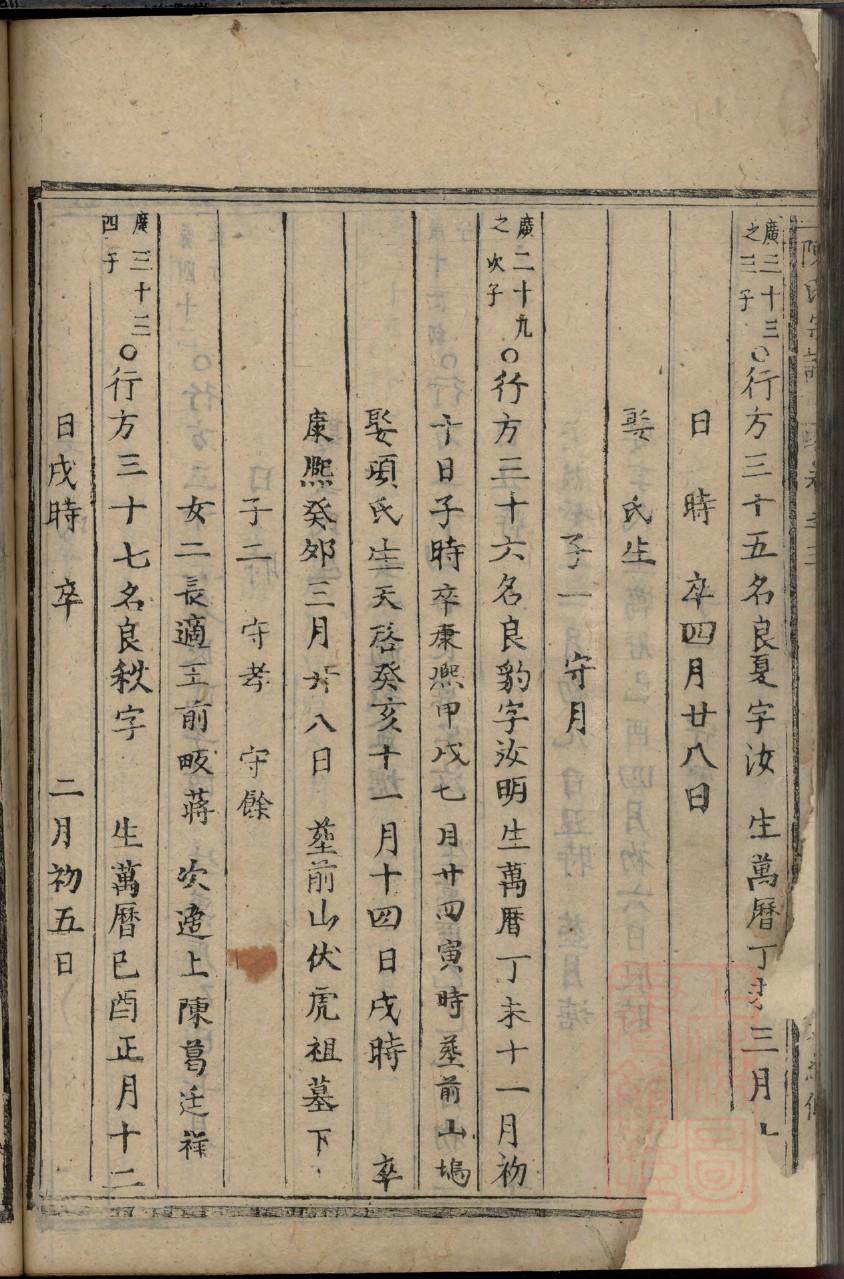 廣三十三之三子○行方三十五名良夏字汝 生萬曆丁 三月
日 時 卒四月廿八日
娶 氏生
子一 守月
廣二十九之次子○行方三十六名良豹字汝明生萬曆丁未十一月初
十日子時卒康熙甲戌七月廿四寅時塟前山塢
娶項氏生天啓癸亥十一月十四日戌時 卒
康熙癸夘三月廿八日 塟前山伏虎祖墓下
子二 守孝 守餘
女二長適王前畈蔣 次適上陳葛廷祥
廣三十三四子○行方三十七名良秋字 生萬曆已酉正月十二
日戌時 卒 二月初五日